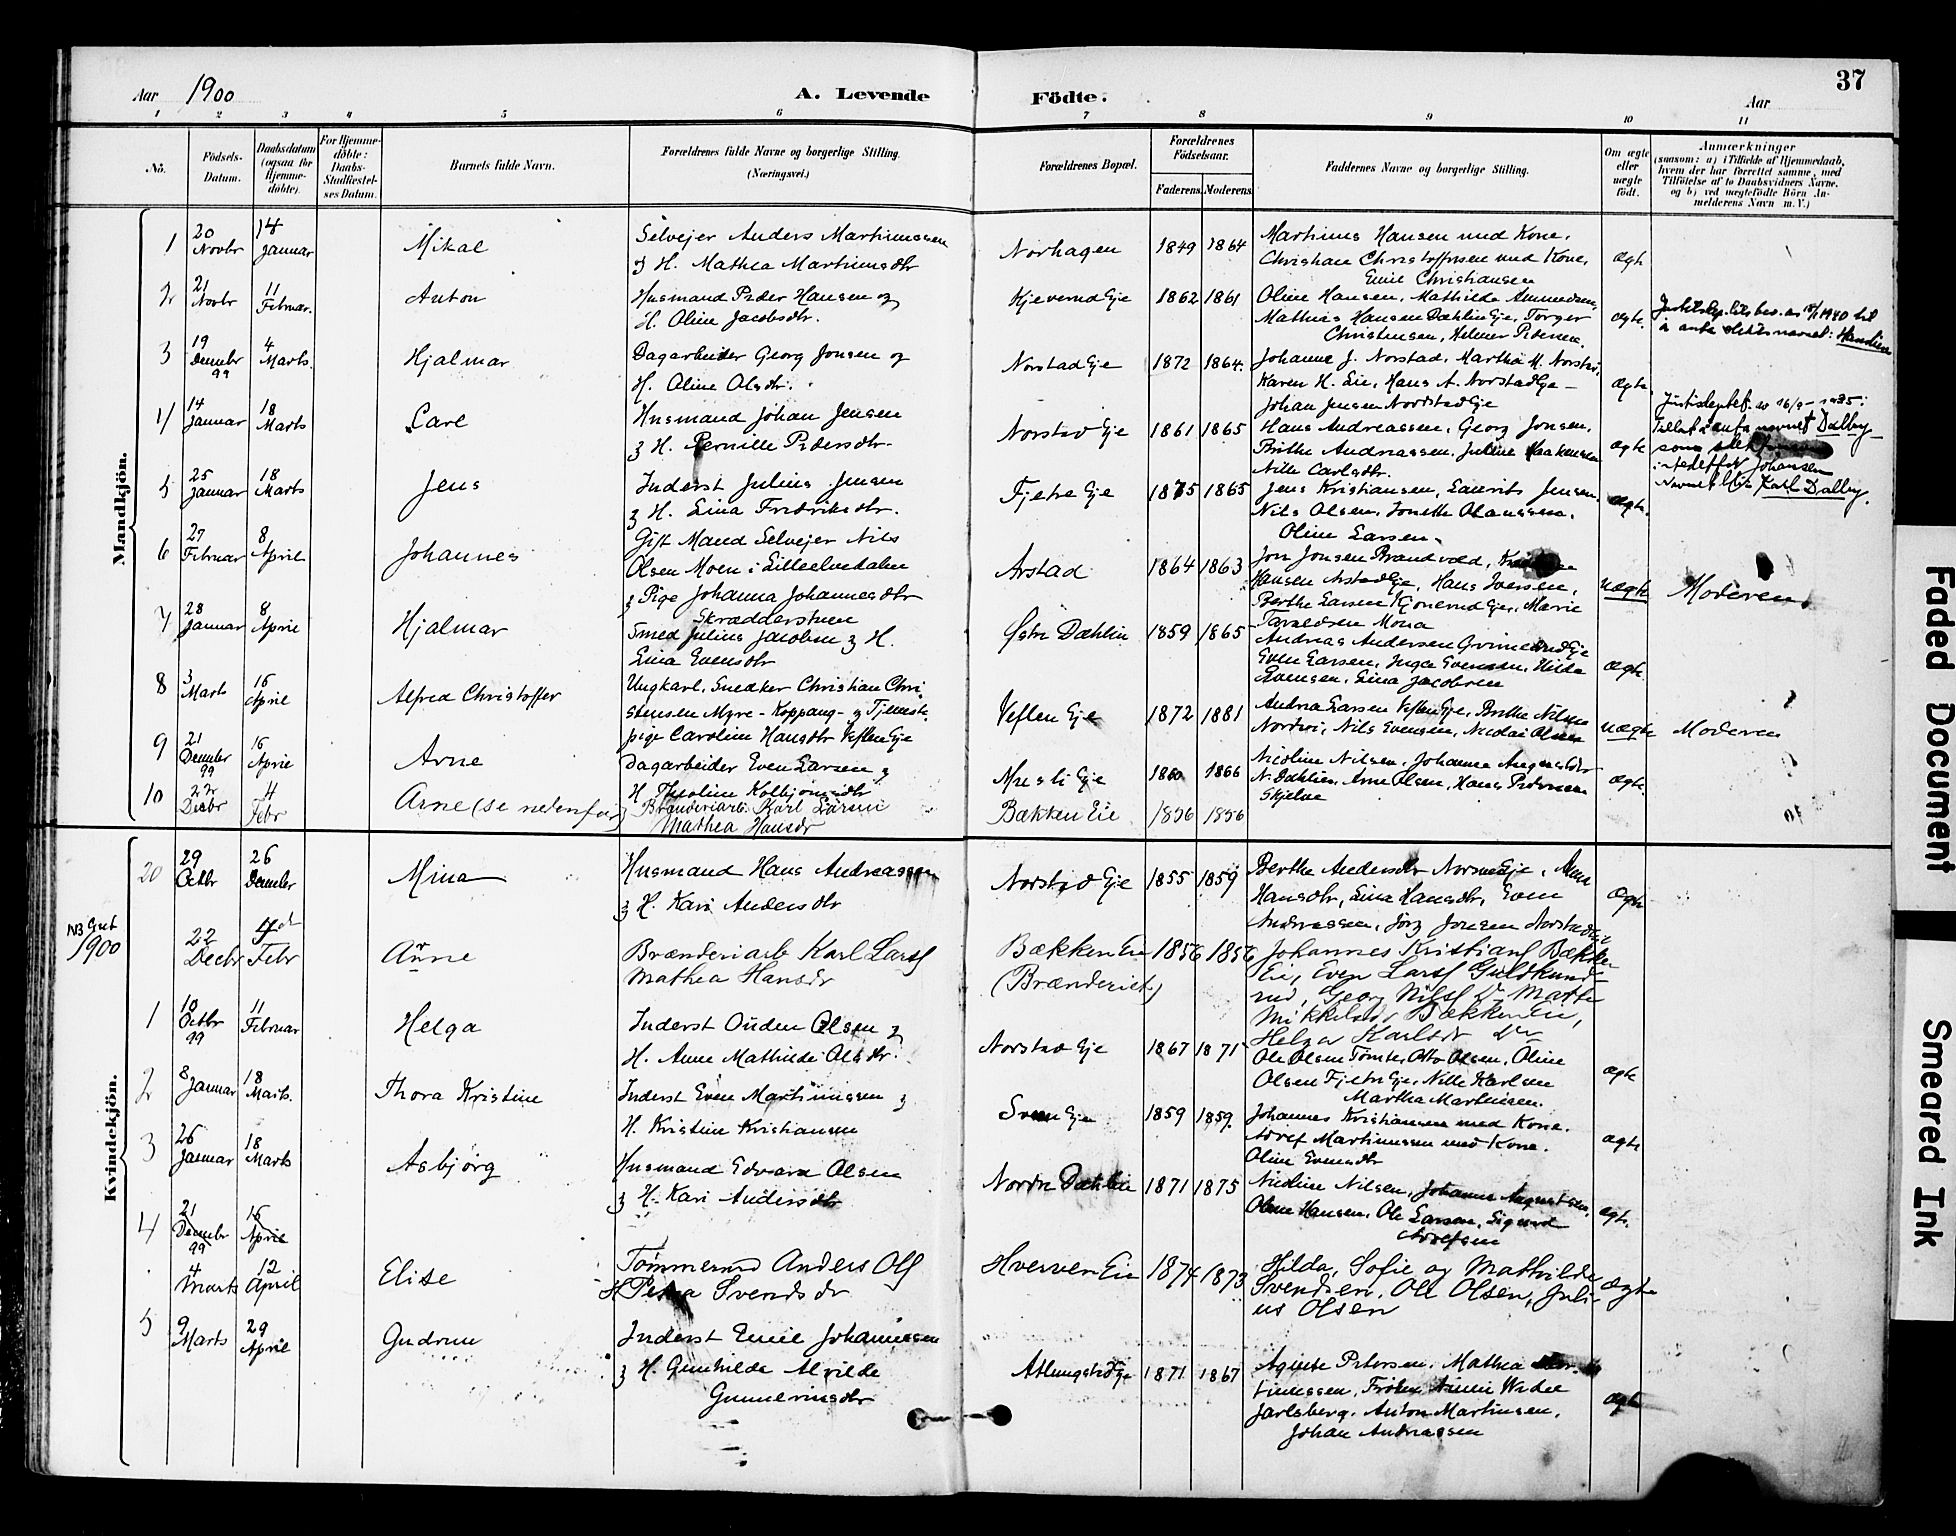 Aar 1900
A. Levende Födte.
37
Aar
1 2 3 4 5 6 7 8 9 10 11
No.
Födsels-Datum.
Daabsdatum (ogsaa for Hjemme-döbte).
For Hjemme-döbte: Daabs-Stadfæstel-ses Datum.
Barnets fulde Navn.
Forældrenes fulde Navne og borgerlige Stilling.
(Næringsvei.)
Forældrenes Bopæl.
Forældrenes Födselsaar.
Faderens. Moderens.
Faddernes Navne og borgerlige Stilling.
Om ægte eller uægte födt.
Anmærkninger
(saasom: a) i Tilfælde af Hjemmedaab,
hvem der har forrettet samme, med
Tilföielse af to Daabsvidners Navne,
og b) ved uægtefödte Börn An-
melderens Navn m. V.)
Mandkjön.
1 20 Novbr 14 Januar Mikal
Selveier Anders Martinussen
& H. Mathea Martinusdtr
Norhagen 1849 1864
Martinus Hansen med Kone,
Christian Christoffersen med Kone,
Emil Christiansen
ægte
2 21 Novbr 11 Februar. Anton
Husmand Peder Hansen og
H. Oline Jacobsdtr.
Kjeverud Eje 1862 1861
Oline Hansen, Mathilde
Mathias Hansen Dæhlin Eje, Torger
Christensen, Helmer Pedersen.
ægte.
1940 til
å anta slektsnavnet: Handlien
3 19 Decembr 99 4 Marts. Hjalmar
Dagarbeider Georg Jonsen og
H. Oline Olsdtr.
Norstad Eje 1872 1864.
Johanne J. Norstad, Martha M. Norstad,
Karen H. Lie, Hans A. Norstad Eje –
Johan Jensen Norstad Eje
ægte
4 14 Januar 18 Marts Carl
Husmand Johan Jensen
& H. Pernille Pedersdtr.
Norstad Eje 1861 1865
Hans Andreassen, Georg Jonsen,
Brithe Andreassen, Juline Haakensen
Nille Carlsdtr.
ægte
Tillatt å anta navnet Dalby
som
istedetfor Johansen
Navnet blir Karl Dalby.
5 25 Januar 18 Marts Jens
Inderst Julius Jensen
& H. Lina Fredriksdtr.
Fjetre Eje 1875 1865
Jens Kristiansen, Laurits Jensen,
Nils Olsen, Jonette Olaussen,
Oline Larsen.
ægte.
6 27 Februar 8 April Johannes
Gift Mand Selveier Nils
Olsen Moen i Lilleelvedalen
& Pige Johanna Johannesdtr
Skrædderstuen
Arstad 1864 1863
Jon Jonsen Brandvold,
Hansen Arstad Eje, Hans Iversen,
Berthe Larsen Kjonerud Eje, Marie
Taraldsen Mona
uægte
Moderen
7 28 Januar 8 April Hjalmar
Smed Julius Jacobsen & H.
Lina Evensdtr
Østre Dæhlin 1859 1865
Andreas Andersen Eje
Even Larsen, Inga Evensen, Hilda
Evensen, Lina Jacobsen
ægte
8 3 Marts 16 April Alfred Christoffer
Ungkarl, Snedker Christian Chri-
stensen Myre – Koppang – & Tjeneste-
pige Caroline Hansdtr Veflen Eje
Veflen Eje 1872 1881
Andrea Larsen Veflen Eje, Brithe Nilsen
Nordvi, Nils Evensen, Nicolai Olsen
uægte
Moderen
9 21 Decembr 99 16 April Arne
Dagarbeider Even Larsen &
H. Karoline Kolbjørnsdtr
Myrsli Eje 1860 1866
Nicoline Nilsen, Johanne Augustsdtr
N. Dæhlien, Arne Olsen, Hans Pedersen
Skjelve
ægte.
10 22 Decbr 4 Febr Arne (se nedenfor)
Brænderiarb. Karl Larsen
Mathea Hansdr
Bækken Eie 1856 1856
Kvindekjön.
20 29 Octbr 26 Decmbr Mina
Husmand Hans Andreassen
& H. Kari Andersdtr
Norstad Eje 1855 1859
Berthe Andersdtr Norstad Eje,
Hansdtr, Lina Hansdtr, Even
Andreassen, Jörg Jonsen Norstad Eje
ægte
N3 Gut
1900
22 Decbr 4 Febr Arne
Brænderiarb Karl Larss
Mathea Hansdr
Bækken Eie 1856 1856
(Brænderiet)
Johannes Kristians Bækken
Eie, Even Larss Guldkund-
rud, Georg Nilss Do Marte
Mikkelsdr Bækken Eie,
Helga Karlsdr Do
1 10 Octbr 99 11 Februar Helga
Inderst Ouden Olsen &
H. Anne Mathilde Olsdtr.
Norstad Eje 1867 1871
Ole Olsen Tomter, Otto Olsen, Oline
Olsen Fjetre Eje, Nille Karlsen
Martha Martinsen.
ægte
2 8 Januar 18 Marts. Thora Kristine
Inderst Even Martinussen &
H. Kristine Kristiansen
Sveen Eje 1859 1859.
Johannes Kristiansen med Kone.
Adolf Martinussen med Kone.
Oline Evensdtr
ægte
3 26 Januar 18 Marts Asbjørg
Husmand Edvard Olsen
& H. Kari Andersdtr
Nordre Dæhlie 1871 1875
Nicoline Nilsen, Johanne Augustsen,
Oline Hansen, Ole Larsen, Sigurd
Adolfsen
ægte.
4 21 Decembr 99 16 April
4 Marts 12 April Elise
Tømmermd Anders Ols
H Petra Svendsdr
Hverven Eie 1874 1873
Hilda, Sofie og Mathilde
Svendsen, Ole Olsen, Juli-
us Olsen
ægte
5 9 Marts 29 April Gudrun
Inderst Emil Johannessen
& H. Gunhilda Alvilde
Gunneriusdtr
Atlungstad Eje 1871 1867
Agnete Petersen, Mathea Mar-
tinussen, Frøken Wedel
Jarlsberg, Anton Martinsen,
Johan Andreassen
ægte
Faded Document
Smeared Ink